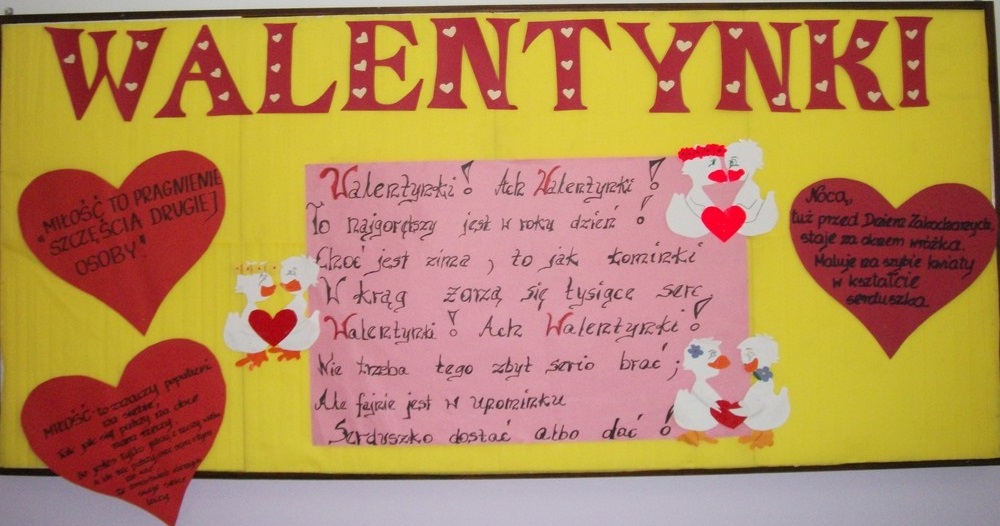 WALENTYNKI
MIŁOŚĆ TO PRAGNIENIE
"SZCZĘŚCIA DRUGIEJ
OSOBY"
Walentynki! Ach Walentynki!
To najgorętszy jest w roku dzień!
Choć jest zima, to jak kominki
W krąg żarzą się tysiące serc,
Walentynki! Ach Walentynki!
Nie trzeba tego zbyt serio brać;
Ale fajnie jest w upominku
Serduszko dostać albo dać!
Nocą,
tuż przed Dniem Zakochanych,
staje za oknem wróżka.
Maluje na szybie kwiaty
w kształcie
serduszka.
MIŁOŚĆ - to znaczy popatrzeć
na siebie,
Tak jak się patrzy na obce
nam rzeczy